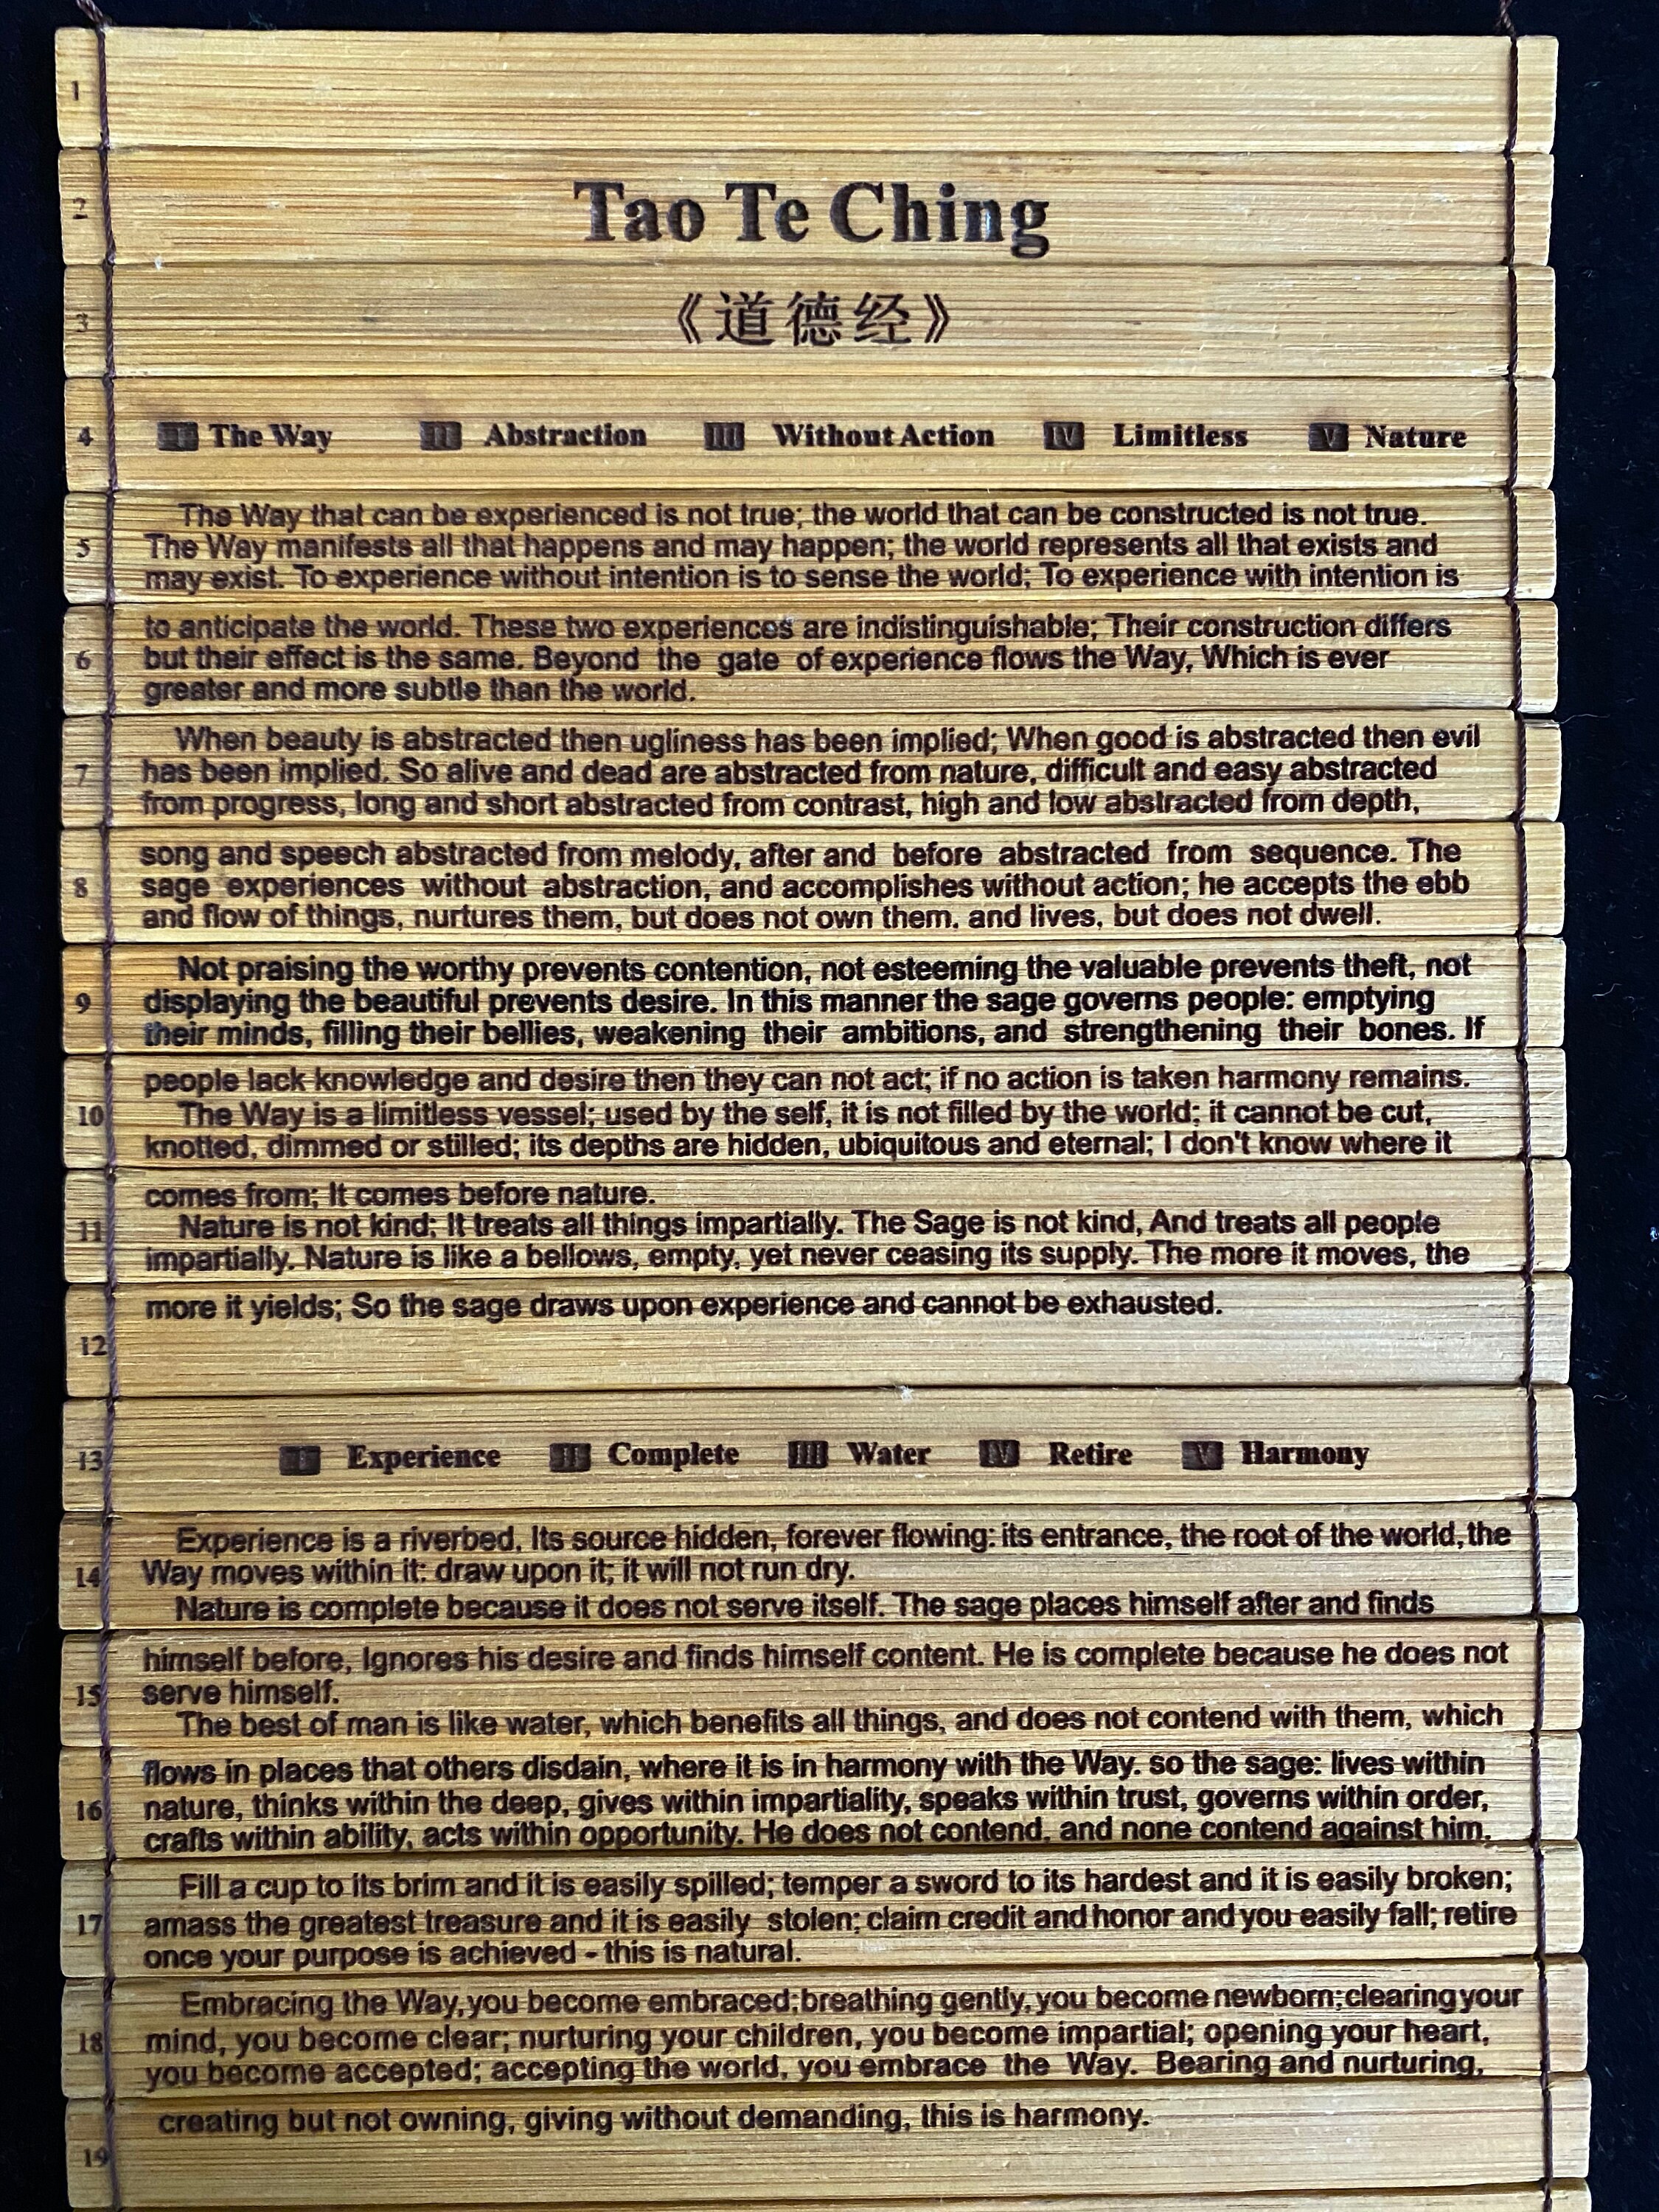 1
2 Tao Te Ching
3 《道德经》
4 I The Way II Abstraction III Without Action IV Limitless V Nature
The Way that can be experienced is not true; the world that can be constructed is not true.
5 The Way manifests all that happens and may happen; the world represents all that exists and
may exist. To experience without intention is to sense the world; To experience with intention is
to anticipate the world. These two experiences are indistinguishable; Their construction differs
6 but their effect is the same. Beyond the gate of experience flows the Way, Which is ever
greater and more subtle than the world.
When beauty is abstracted then ugliness has been implied; When good is abstracted then evil
7 has been implied. So alive and dead are abstracted from nature, difficult and easy abstracted
from progress, long and short abstracted from contrast, high and low abstracted from depth,
song and speech abstracted from melody, after and before abstracted from sequence. The
8 sage experiences without abstraction, and accomplishes without action; he accepts the ebb
and flow of things, nurtures them, but does not own them. and lives, but does not dwell.
Not praising the worthy prevents contention, not esteeming the valuable prevents theft, not
9 displaying the beautiful prevents desire. In this manner the sage governs people: emptying
their minds, filling their bellies, weakening their ambitions, and strengthening their bones. If
people lack knowledge and desire then they can not act; if no action is taken harmony remains.
10 The Way is a limitless vessel; used by the self, it is not filled by the world; it cannot be cut,
knotted, dimmed or stilled; its depths are hidden, ubiquitous and eternal; I don't know where it
comes from; It comes before nature.
11 Nature is not kind; It treats all things impartially. The Sage is not kind, And treats all people
impartially. Nature is like a bellows, empty, yet never ceasing its supply. The more it moves, the
more it yields; So the sage draws upon experience and cannot be exhausted.
12
13 I Experience II Complete III Water IV Retire V Harmony
Experience is a riverbed, Its source hidden, forever flowing: its entrance, the root of the world, the
14 Way moves within it: draw upon it; it will not run dry.
Nature is complete because it does not serve itself. The sage places himself after and finds
himself before, Ignores his desire and finds himself content. He is complete because he does not
15 serve himself.
The best of man is like water, which benefits all things, and does not contend with them, which
flows in places that others disdain, where it is in harmony with the Way. so the sage: lives within
16 nature, thinks within the deep, gives within impartiality, speaks within trust, governs within order,
crafts within ability, acts within opportunity. He does not contend, and none contend against him.
Fill a cup to its brim and it is easily spilled; temper a sword to its hardest and it is easily broken;
17 amass the greatest treasure and it is easily stolen; claim credit and honor and you easily fall; retire
once your purpose is achieved - this is natural.
Embracing the Way, you become embraced; breathing gently, you become newborn; clearing your
18 mind, you become clear; nurturing your children, you become impartial; opening your heart,
you become accepted; accepting the world, you embrace the Way. Bearing and nurturing,
creating but not owning, giving without demanding, this is harmony.
19